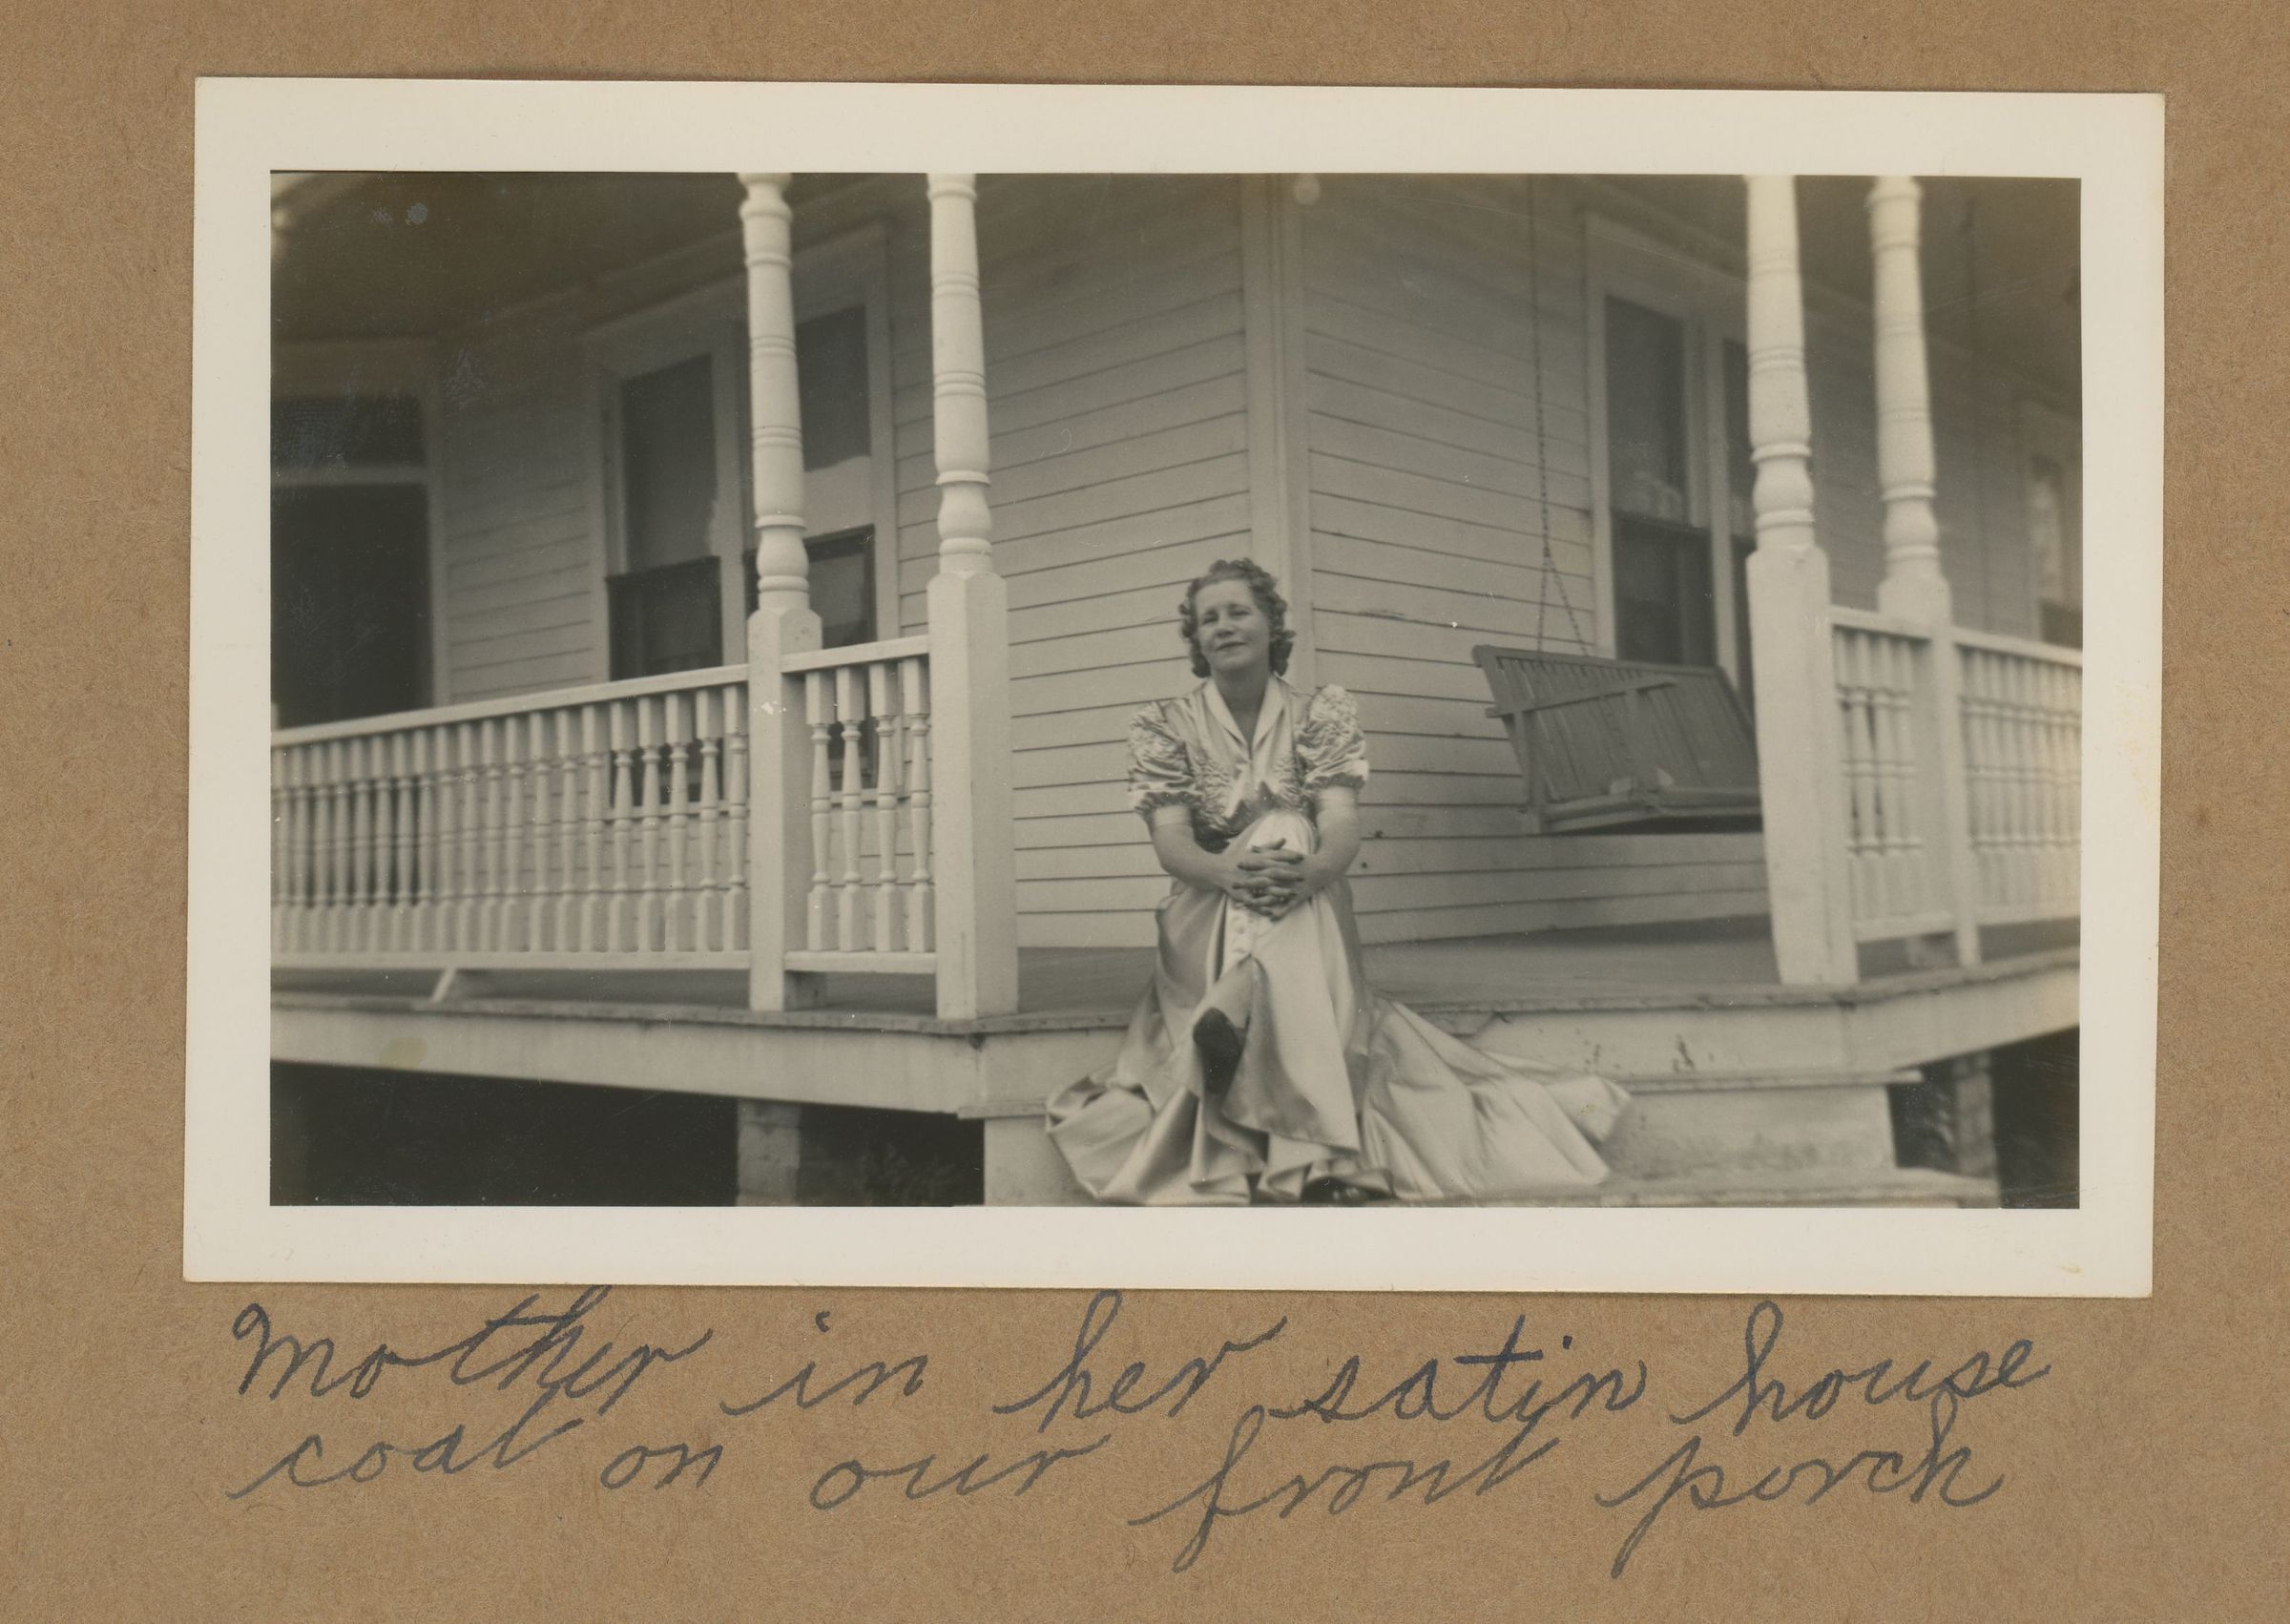 Mother in her satin house
coat on our front porch